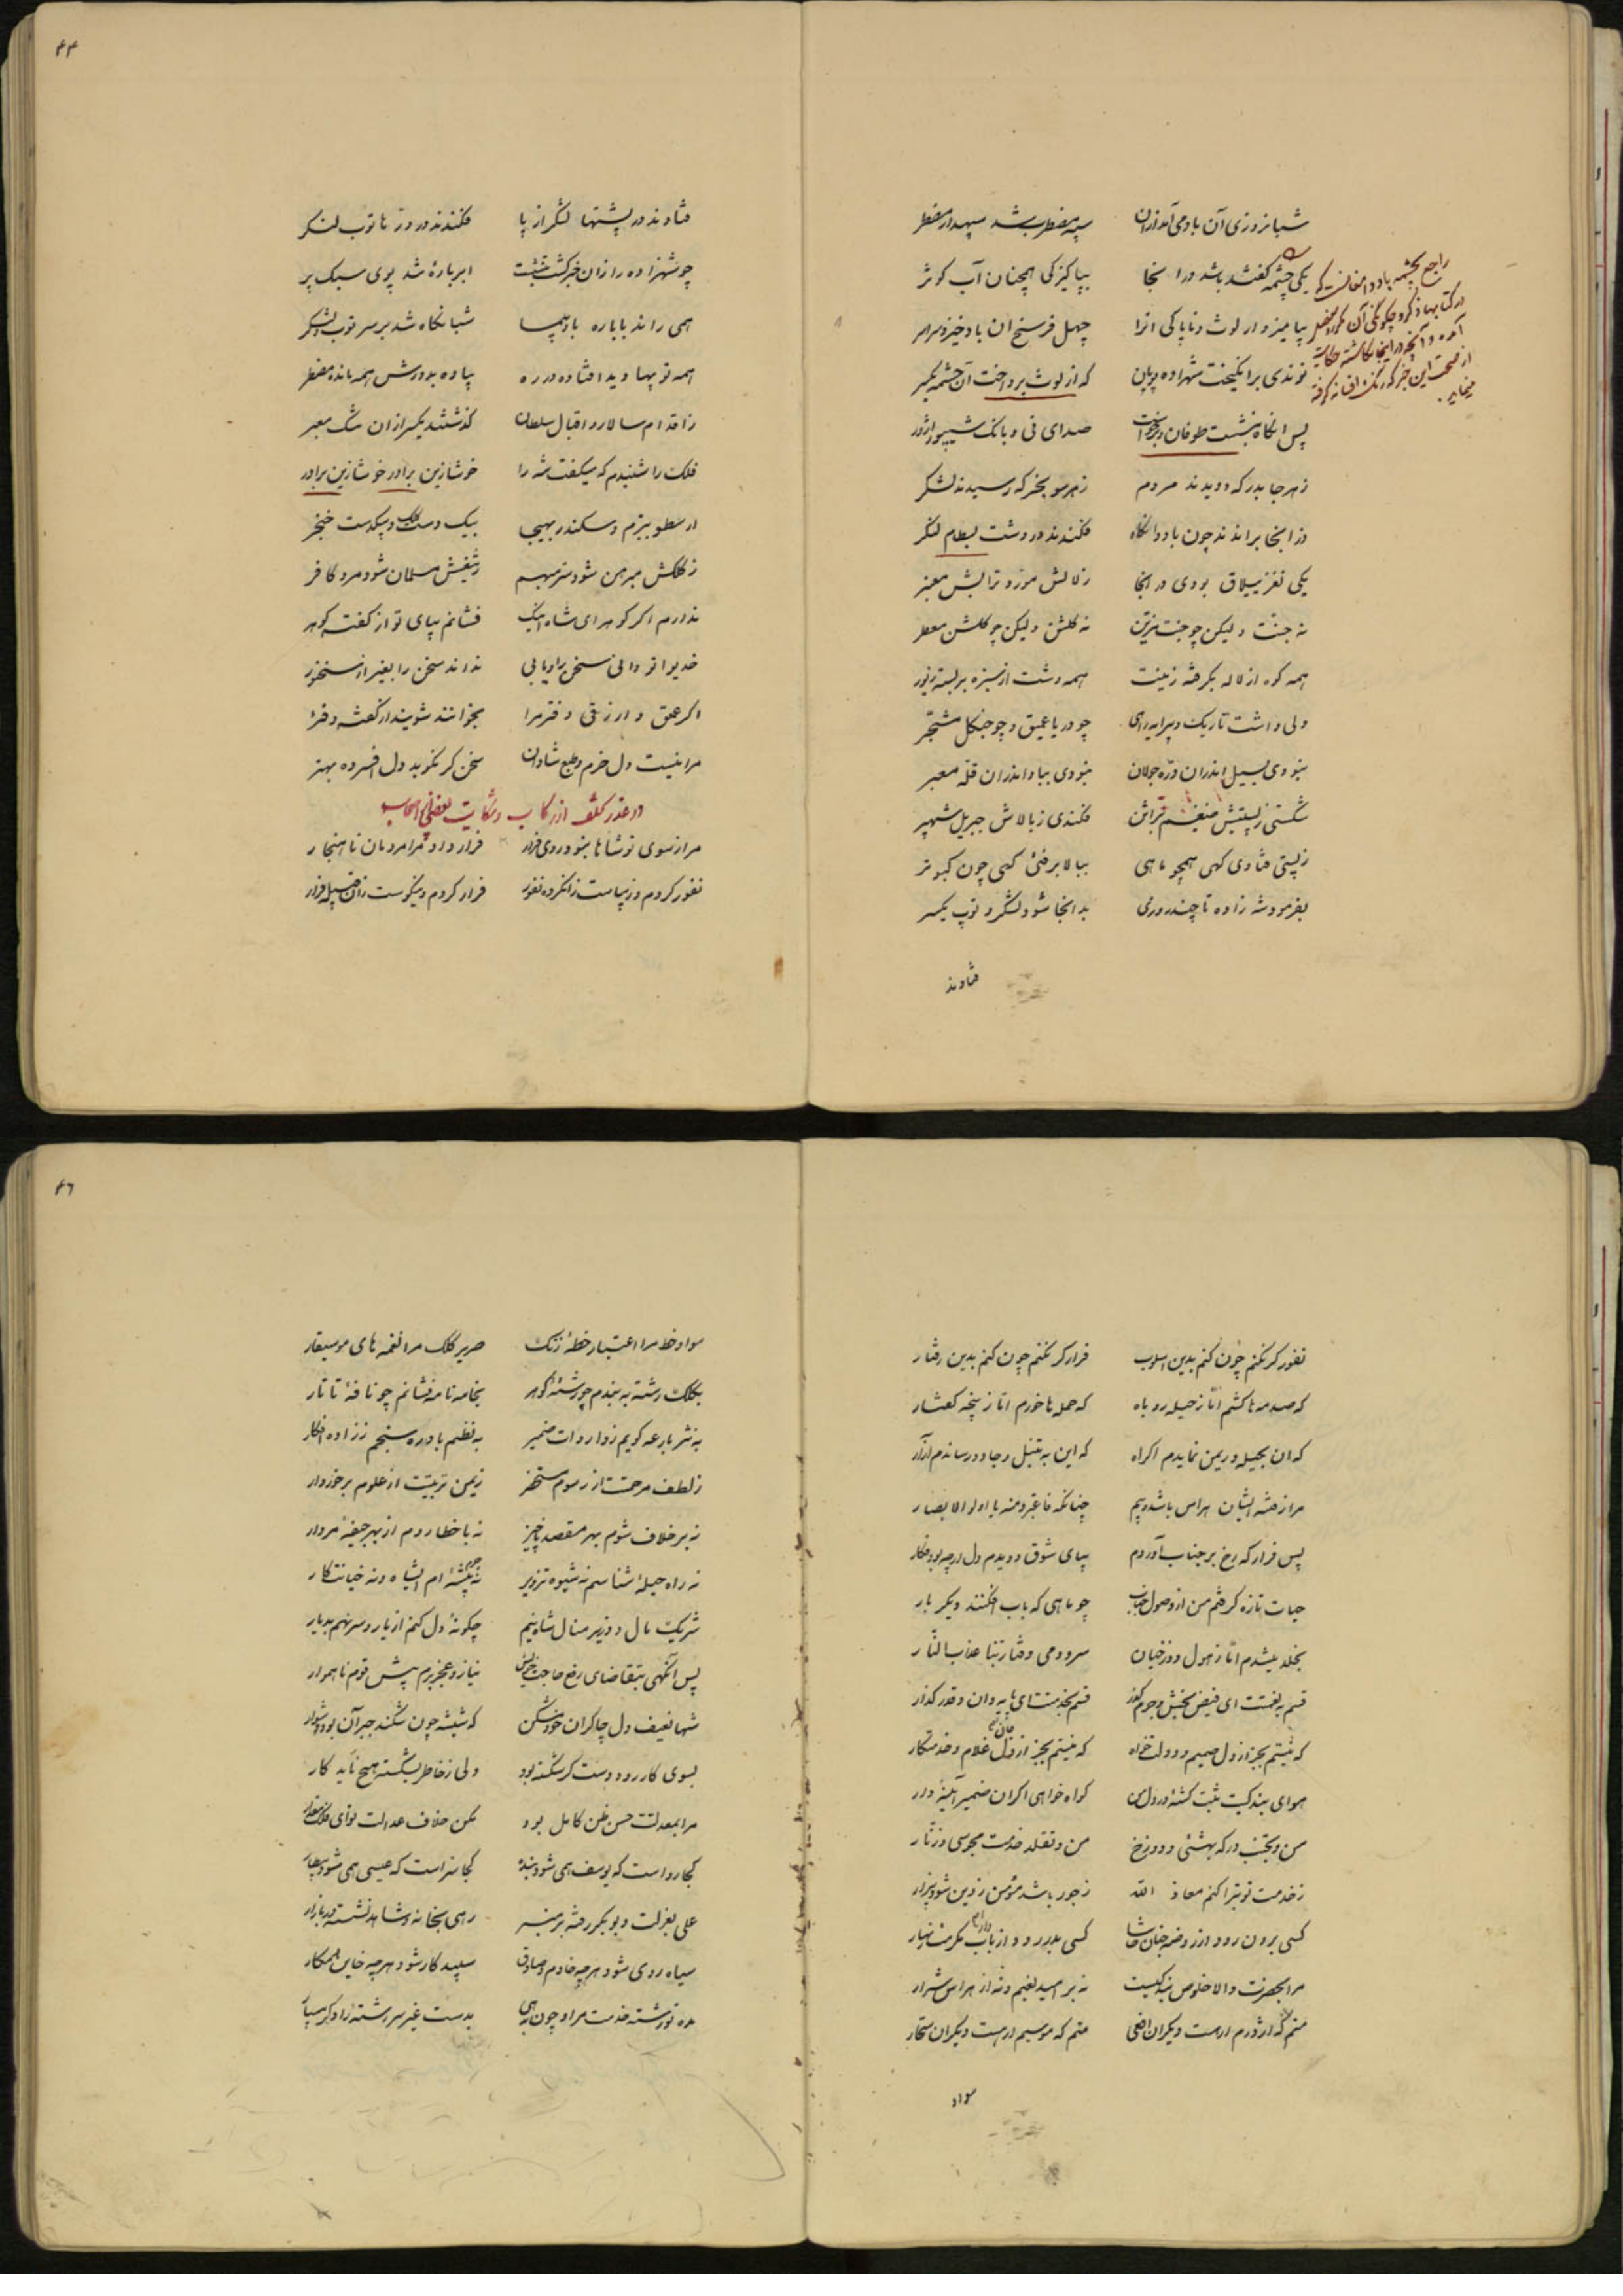 شبانروزی آن باد می‌آمد ازان سپه مضطرب شد سپهدار مضطر
یکی چشمه گفتند باشد در انجا بپاکیزکی همچنان آب کوثر
بیامیزد ار لوث و ناپاکی انرا چهل فرسخ ان باد خیزد سراسر
نوندی برانکیخت شهزاده پویان که از لوث پرداخت آن چشمه یکسر
پس انکاه بنشست طوفان و برخواست صدای نی و بانک شیپور اژدر
زهر جا بدرکه دویدند مردم زهر سو بخرکه رسیدند لشکر
وز انجا براندند چون باد وانگاه فکندند در دشت بسطام لنگر
یکی نغز ییلاق بودی در انجا
نه جنت ولیکن چو جنت مزین نه کلشن ولیکن چو کلشن معطر
همه کوه از لاله بکرفته زینت همه دشت از سبزه بر بسته زیور
ولی داشت تاریک چو دریا عمیق و چو جنکل مشجّر
نبودی بسیل اندران درّه جولان نبودی بباد اندران قلّه معبر
شکستی زپستیش فکندی زبالاش جبریل شهپر
زپستی فتادی کهی همچو ماهی ببالا برفتی کهی چون کبوتر
بفرمود شه زاده تا چند روزی بدانجا شود لشکر و توپ یکسر
فتادند
راجع بچشمه باد دامغان است که
در کتابها ذکر و چکونکی آن
از صحت این خبر که رنگ افسانه گرفته
مینماید.
۴۴
فتادند در پشتها لشکر از پا فکندند در دزها توب لنکر
چو شهزاده را زان خبر کشت ابر باره شد پوی سبک پر
همی راند با باره بادپیما شبانکاه شد بر سر توب و لشکر
همه توپها دید افتاده در ره پیاده بدورش همه مانده مضطر
ز اقدام سالار و اقبال سلطان کذشتند یکسر ازان سنک معبر
فلک را شنیدم که میکفت شه را خوشا زین برادر خوشا زین برادر
ارسطو ببزم و سکندر بهیجا بیک دست کلک و بیکدست خنجر
ز کلکش مبرهن شود سر مبهم ز تیغش مسلمان شود مرد کافر
ندارم اکر کوهر ای شاه اینک فشانم بپای تو از کفته کوهر
خدیوا تو دانی سخن را نداند سخن را بغیر از سخنور
اکر عمعق و ارزقی دفترم را بخوانند شویند از کفته دفتر
مرا نیست دل خرم و طبع شادان سخن کر نکوید دل افسرده بهتر
در عذر تخلف از رکاب و شکایت بعضی اصحاب
مرا زسوی تو شاها نبود روی فرار فرار داد مرا مردمان ناهنجار
نفور کردم و زیباست فرار کردم و نیکوست زان قبیله فرار
نفور کر نکنم چون کنم بدین اسلوب فرار کر نکنم چون کنم بدین رفتار
که صدمه‌ها کشم امّا زحیله روباه که حمله‌ها خورم امّا ز پنجه کفتار
که ان بحیله و ریمن نمایدم اکراه که این به تنبل و جادو رساندم آزار
مرا زفتنه ایشان هراس باشد و بیم چنانکه فاعتبروا منه یا اولوالابصار
پس فرار که رخ بر جناب آوردم بپای شوق دویدم دل ارچه بود فکار
حیات تازه گرفتم من از وصول جناب چو ماهی که بآب افکنند دیکر بار
بخلد میشدم امّا زهول دوزخیان سرودمی وقنا ربنا عذاب النّار
قسم بنعمتت ای فیض بخش و جرم کذر قسم بخدمتت ای پایه دان و قدر کذار
که نیستم بجز از دل صمیم و دولت خواه که نیستم بجز از جان غلام و خدمتکار
هوای بندکیت ثبت کشته در دل من کواه خواهی اکر ان ضمیر آینه دار
من و تجنب درکه بهشتی و دوزخ من و تقلد خدمت مجوسی و زنّار
زخدمت تو تبرا کنم معاذ الله زجور باشد مؤمن ز دین شود بیزار
کسی برون رود از روضه جنان حاشا کسی بدر رود از باب مکرمت زنهار
مرا بحضرت والا خلوص بندکیست نه بر امید نعیم و نه از هراس شرار
منم که اژدرم ار هست دیکران افعی منم که موسیم ار هست دیکران سحّار
سواد
۴۶
سواد خط مرا اعتبار خطهٔ زنک صریر کلک مرا نغمه‌های موسیقار
بکلک رشته به بندم چو رشتهٔ کوهر بخامه نافه فشانم چو نافهٔ تاتار
به نثر بارعه کویم به نظم بادره سنجم ز زاده افکار
زلطف مرحمتت از رسوم مستحضر زیمن تربیتت از علوم برخوردار
نه بر خلاف شوم بهر مقصد ناچیز نه با خطا روم از بهر جیفهٔ مردار
نه راه حیله شناسم نه شیوه تزویر
شریک مال و وزیر منال شاه نیم چکونه دل کنم از یار و سر نهم بدیار
پس آنکهی بتقاضای رفع حاجت خویش نیاز و عجز برم پیش قوم ناهموار
شها نعیف دل چاکران خود مشکن که شیشه چون شکند جبر آن بود دشوار
بسوی کار رود دست کر شکسته بود ولی زخاطر بشکسته هیچ ناید کار
مرا بمعدلتت حسن ظن کامل بود مکن خلاف عدالت تو ای
کجا رواست که یوسف همی شود بنده کجا سزاست که عیسی همی شود
علی بعزلت و بوبکر رفته بر منبر رهی بخانه و شاهد نشسته در بازار
سیاه روی شود هرچه خادم و صادق سپید کار شود هرچه خاین و مکار
مده تو رشته خدمت مرا چو بدست غیر سر رشته